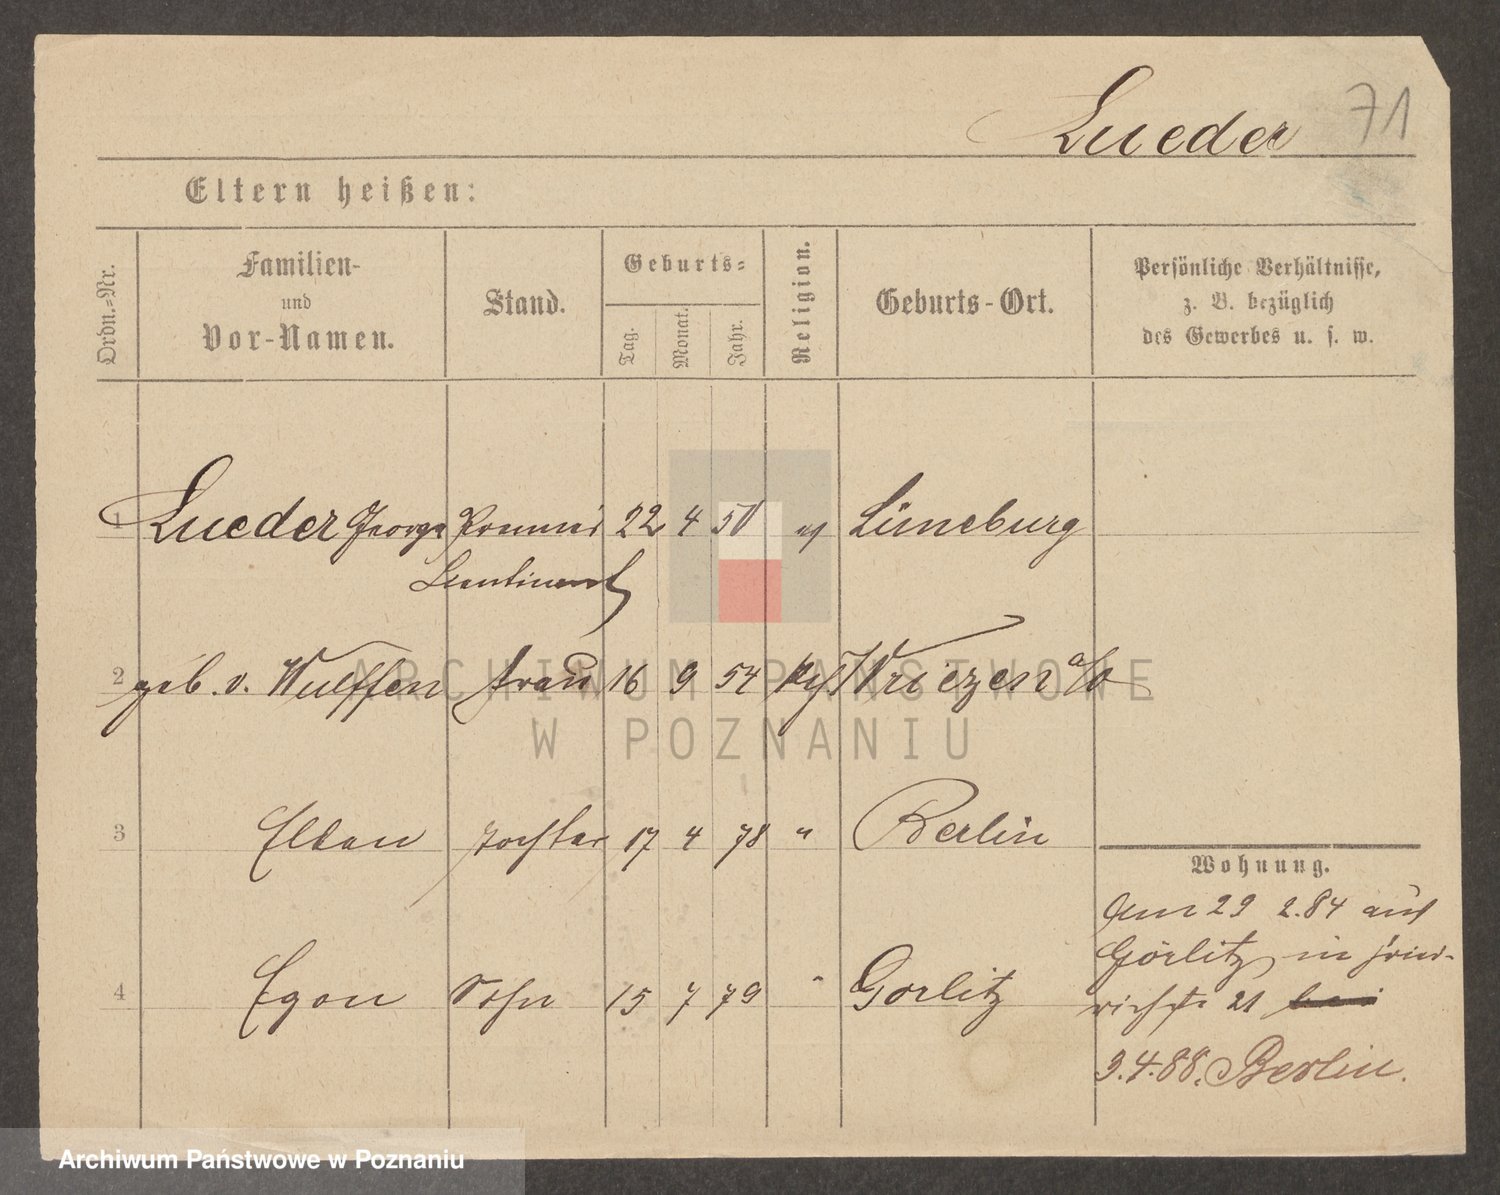 Lueder 71
Eltern heißen:
Ordn.-Nr.
Familien-
und
Vor-Namen.
Stand.
Geburts-
Tag.
Monat.
Jahr.
Religion.
Geburts-Ort.
Persönliche Verhältnisse,
z. B. bezüglich
des Gewerbes u. s. w.
1 Lueder George Premier 22 4 50 ev Lüneburg
Lieutinant
2 geb. v. Wulffen Frau 16 9 54 Wriezen a/o
3 Ellen Tochter 17 4 78 " Berlin
4 Egon Sohn 15 7 79 " Gorlitz
Wohnung.
Am 29 2.84 aus
Görlitz in Fried-
richstr 21
3.4.88. Berlin.
ARCHIWUM PAŃSTWOWE
W POZNANIU
Archiwum Państwowe w Poznaniu